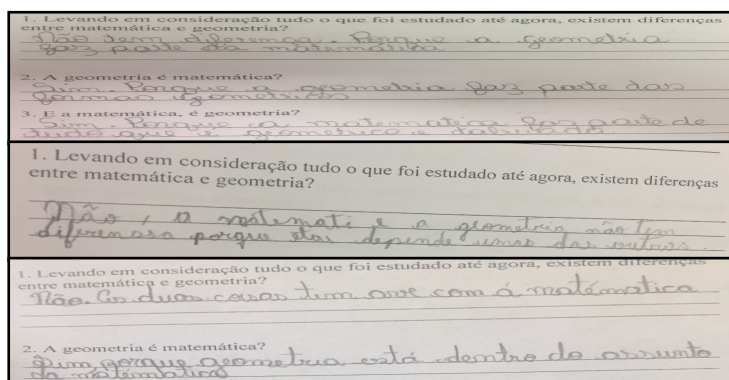 1. Levando em consideração tudo o que foi estudado até agora, existem diferenças
entre matemática e geometria?
Não tem diferença. Porque a geometria
faz parte da matemática
2. A geometria é matemática?
Sim. Porque a geometria faz parte das
formas geometricas
3. E a matemática, é geometria?
Sim. Porque a matemateca faz parte de
tudo que é geometrico e
1. Levando em consideração tudo o que foi estudado até agora, existem diferenças
entre matemática e geometria?
Não, a matemati e a geometria não tem
diferensa porque elas depende umas das outras.
1. Levando em consideração tudo o que foi estudado até agora, existem diferenças
entre matemática e geometria?
Não. As duas coisas tem avê com á matématica
2. A geometria é matemática?
Sim, porque geometria está dentro do assunto
da matématica